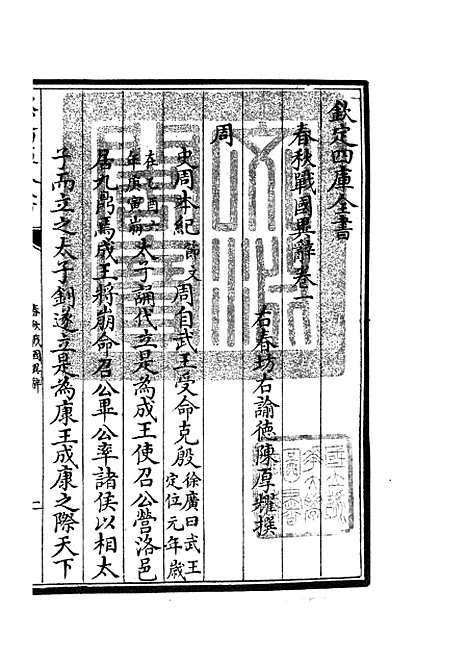 欽定四庫全書
春秋戰國異辭卷一
右春坊右諭德陳厚耀撰
周
史周本紀節文周自武王受命克殷徐廣曰武王定位元年歲
在乙酉六年庚寅崩太子誦代立是為成王使召公營洛邑
居九鼎焉成王將崩命召公畢公率諸侯以相太
子而立之太子釗遂立是為康王成康之際天下
春秋戰國異辭